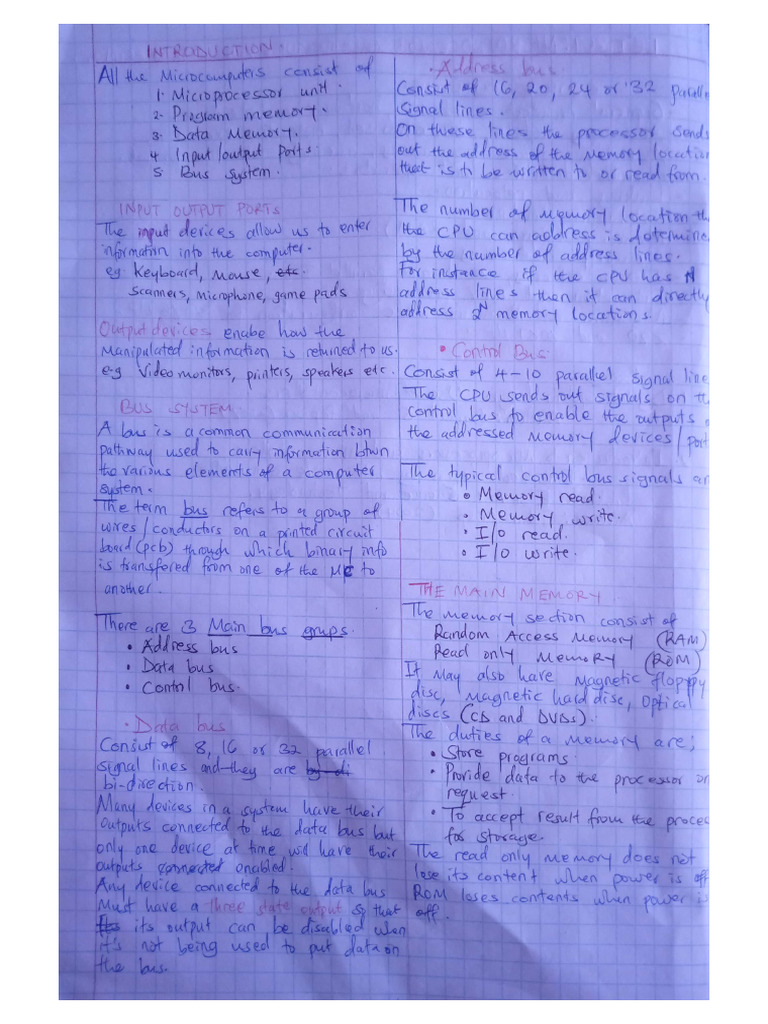 INTRODUCTION.
All the Microcomputers consist of
1. Microprocessor unit.
2. Program memory.
3. Data Memory.
4 Input/output Ports
5 Bus system.
INPUT OUTPUT PORTS
The input devices allow us to enter
information into the computer.
eg Keyboard, Mouse, etc.
Scanners, microphone, game pads
Output devices enabe how the
Manipulated information is returned to us.
e.g Video monitors, printers, speakers etc.
BUS SYSTEM
A bus is a common communication
pathway used to carry information btwn
the various elements of a computer
system.
The term bus refers to a group of
wires/conductors on a printed circuit
board (pcb) through which binary info
is transfered from one of the MC to
another.
There are 3 Main bus grups.
• Address bus
• Data bus
• Control bus.
• Data bus
Consist of 8, 16 or 32 parallel
signal lines and they are by di
bi-direction.
Many devices in a system have their
outputs connected to the data bus but
only one device at time will have their
outputs connected enabled.
Any device connected to the data bus
Must have a Three state output so that
its output can be disabled when
it's not being used to put data on
the bus.
• Address bus
Consist of 16, 20, 24 or 32 paralle
signal lines.
On these lines the processor sends
out the address of the Memory location
that is to be written to or read from.
The number of memory location th
the CPU can address is determine
by the number of address lines.
For instance if the CPU has N
address lines then it can directly
address 2^N memory locations.
• Control Bus.
Consist of 4-10 parallel signal line
The CPU sends out signals on th
control bus to enable the outputs o
the addressed Memory devices/port
The typical control bus signals ar
• Memory read.
• Memory write.
• I/O read.
• I/O write.
THE MAIN MEMORY
The memory section consist of
Random Access Memory (RAM)
Read only Memory (ROM)
It May also have Magnetic floppy
disc, Magnetic hard disc, Optical
discs (CD and DVDs).
The duties of a Memory are;
• Store programs.
• Provide data to the processor on
request.
• To accept result from the proces
for storage.
The read only memory does not
lose its content when power is off
ROM loses contents when power is
off.